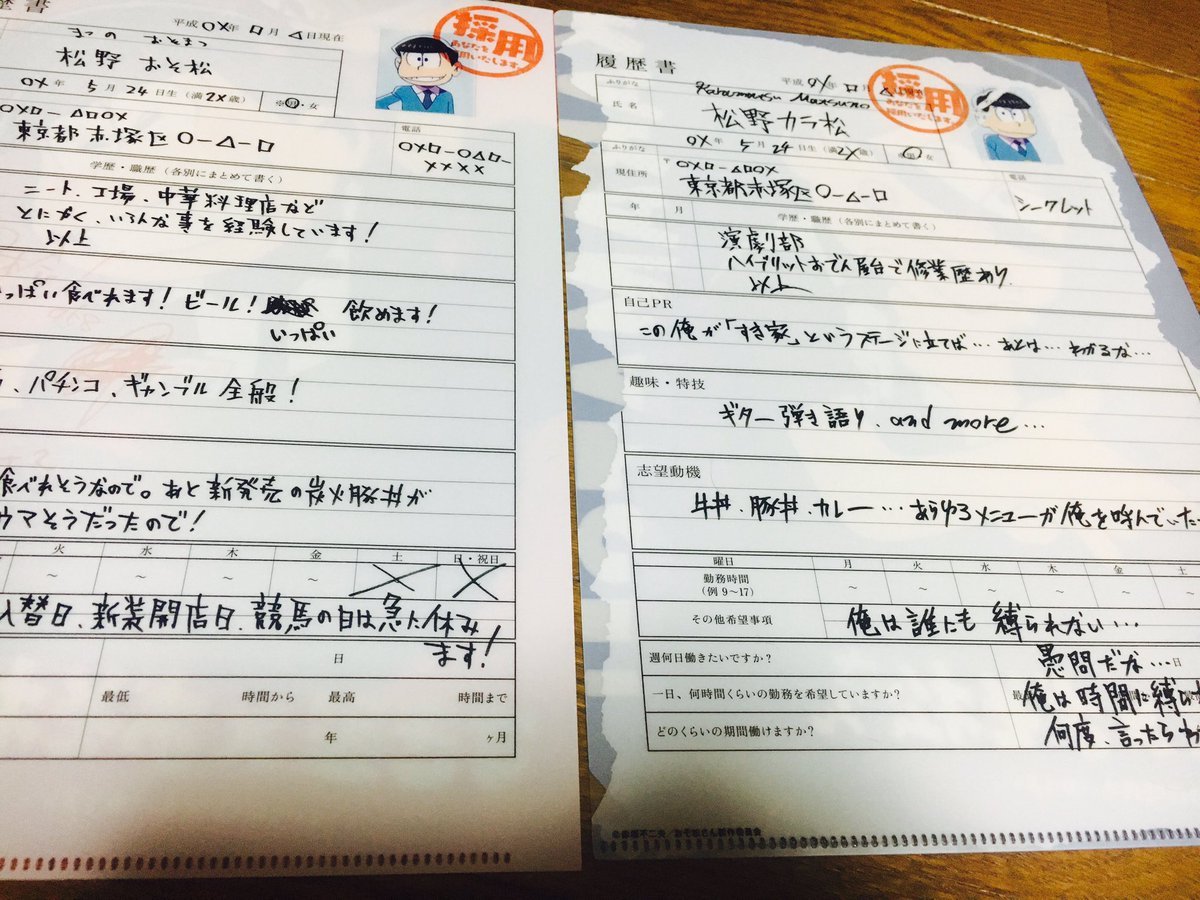 歴書
平成 0X年 ロ月 △日現在
まつの おそまつ
松野 おそ松
0X年 5月 24日生(満2X歳)
※男・女
採用
あなたを
採用いたします。
0Xロ-△ロ0X
東京都赤塚区0-△-ロ
電話
0Xロ-0△ロ-
XXXX
学歴・職歴(各別にまとめて書く)
ニート、工場、中華料理店など
とにかく、いろんな事を経験しています!
以上
っぱい食べれます!ビール! 飲めます!
いっぱい
、パチンコ、ギャンブル全般!
食べれそうなので。あと新発売の炭火豚丼が
ウマそうだったので!
火 水 木 金 土 日・祝日
~ ~ ~ ~
入替日、新装開店日、競馬の日は急に休み
ます!
日
最低 時間から 最高 時間まで
年 ヶ月
履歴書
平成 0X年 ロ月
採用
あなたを
採用いたします。
ふりがな
Karamatsu Matsuno
氏名
松野カラ松
0X年 5月 24日生(満2X歳)
女
ふりがな
現住所
〒0Xロ-△ロ0X
東京都赤塚区0-△-ロ
電話
シークレット
年 月 学歴・職歴(各別にまとめて書く)
演劇部
ハイブリットおでん屋台で修業歴あり
以上
自己PR
この俺が「すき家」というステージに立てば…あとは…わかるな…
趣味・特技
ギター弾き語り、and more…
志望動機
牛丼、豚丼、カレー…あらゆるメニューが俺を呼んでいた
曜日 月 火 水 木 金 土
勤務時間
(例 9~17)
~ ~ ~ ~ ~
その他希望事項
俺は誰にも縛られない…
週何日働きたいですか?
愚問だな…日
一日、何時間くらいの勤務を希望していますか?
俺は時間に縛ら
どのくらいの期間働けますか?
何度、言ったらわ
©赤塚不二夫/おそ松さん製作委員会